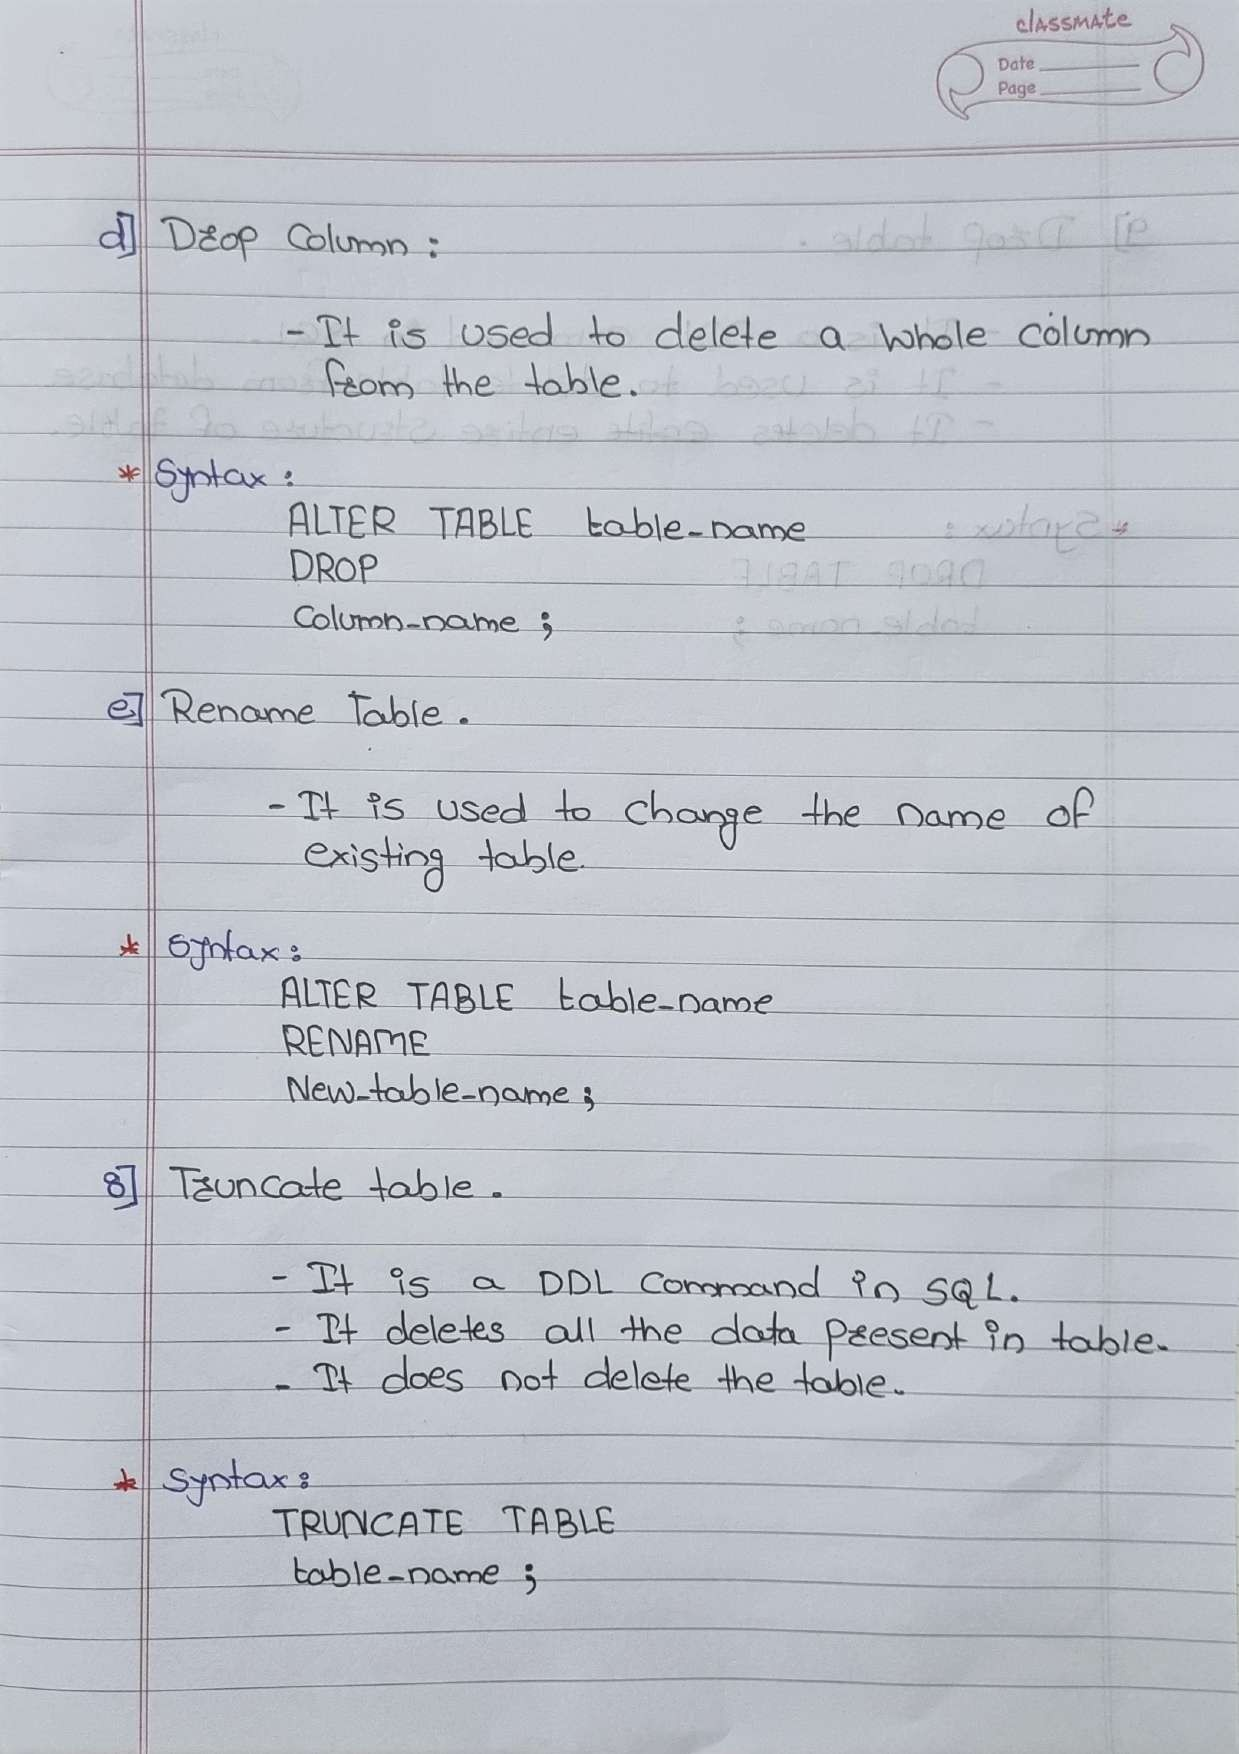 classmate
Date
Page
d] Drop Column :
- It is used to delete a whole column
from the table.
* Syntax :
ALTER TABLE table_name
DROP
Column_name ;
e] Rename Table .
- It is used to change the name of
existing table.
* Syntax :
ALTER TABLE table_name
RENAME
New_table_name ;
8] Truncate table .
- It is a DDL Command in SQL.
- It deletes all the data present in table.
- It does not delete the table.
* Syntax :
TRUNCATE TABLE
table_name ;